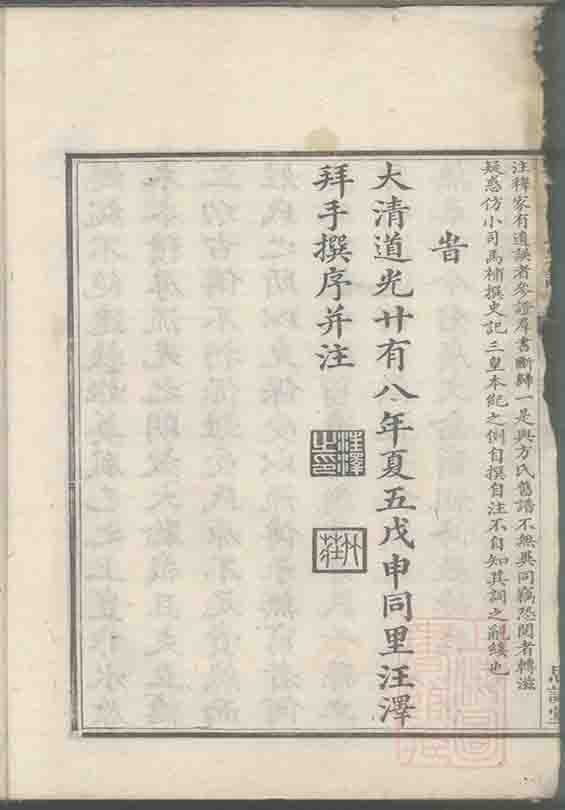 注釋家有遺誤者參證羣書斷歸一是與方氏舊譜不無異同竊恐閱者轉滋
疑惑仿小司馬補撰史記三皇本紀之例自撰自注不自知其詞之覼縷也
旹
大清道光廿有八年夏五戊申同里汪澤
拜手撰序并注
汪澤之印